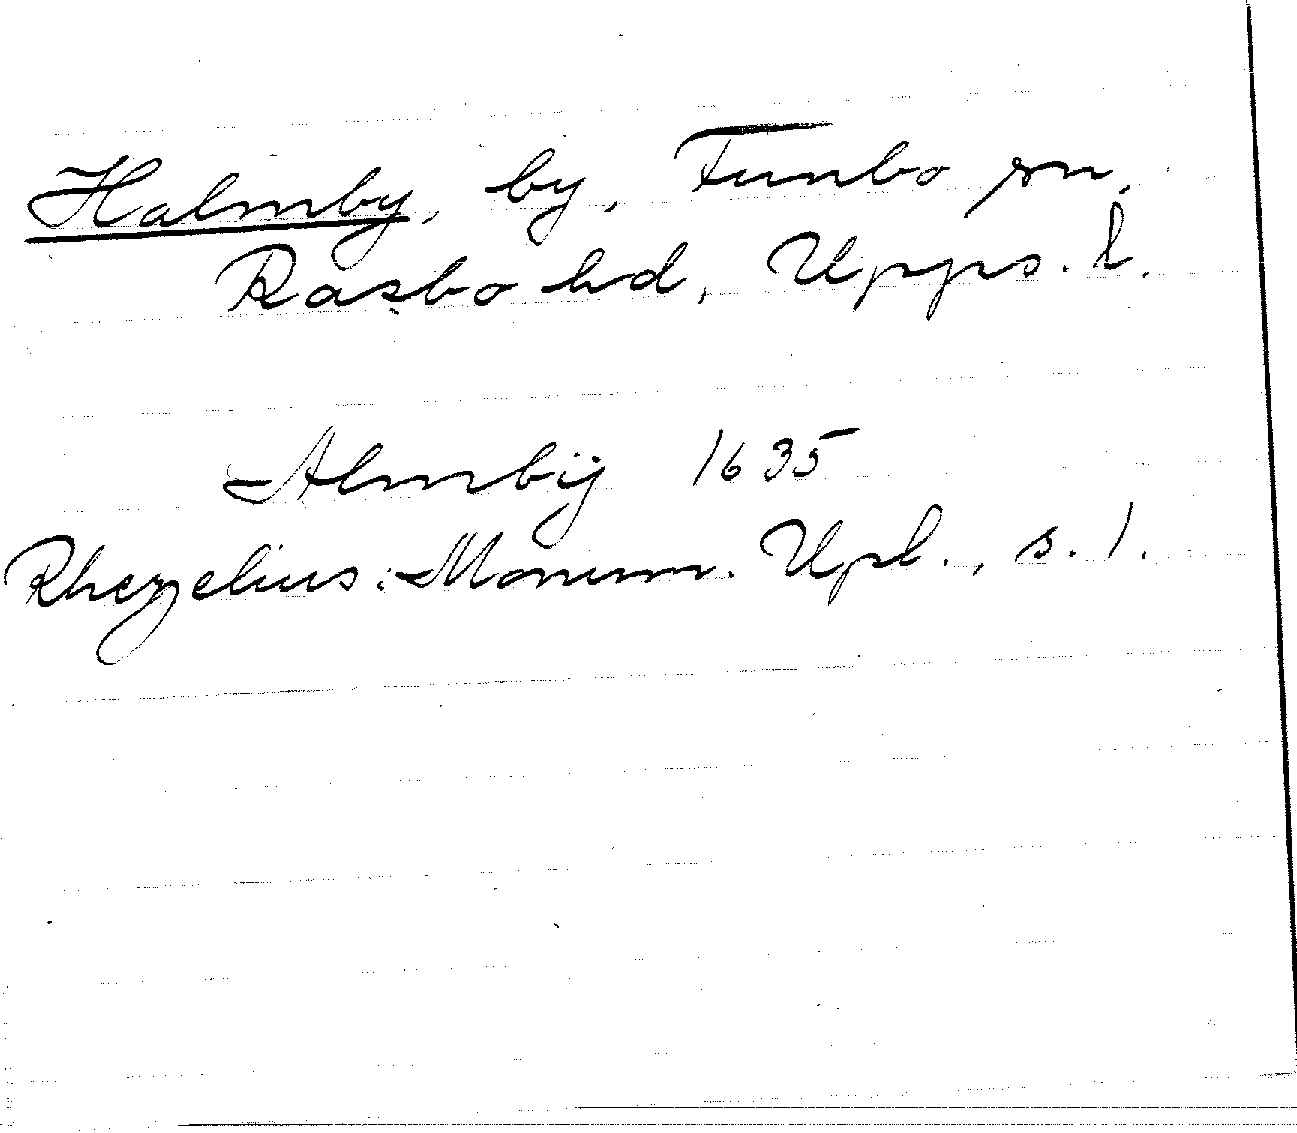 Halmby, by, Funbo sn,
Rasbo hd, Upps. l.
Almbÿ 1635
Rhezelius: Monum. Upl., s. 1.